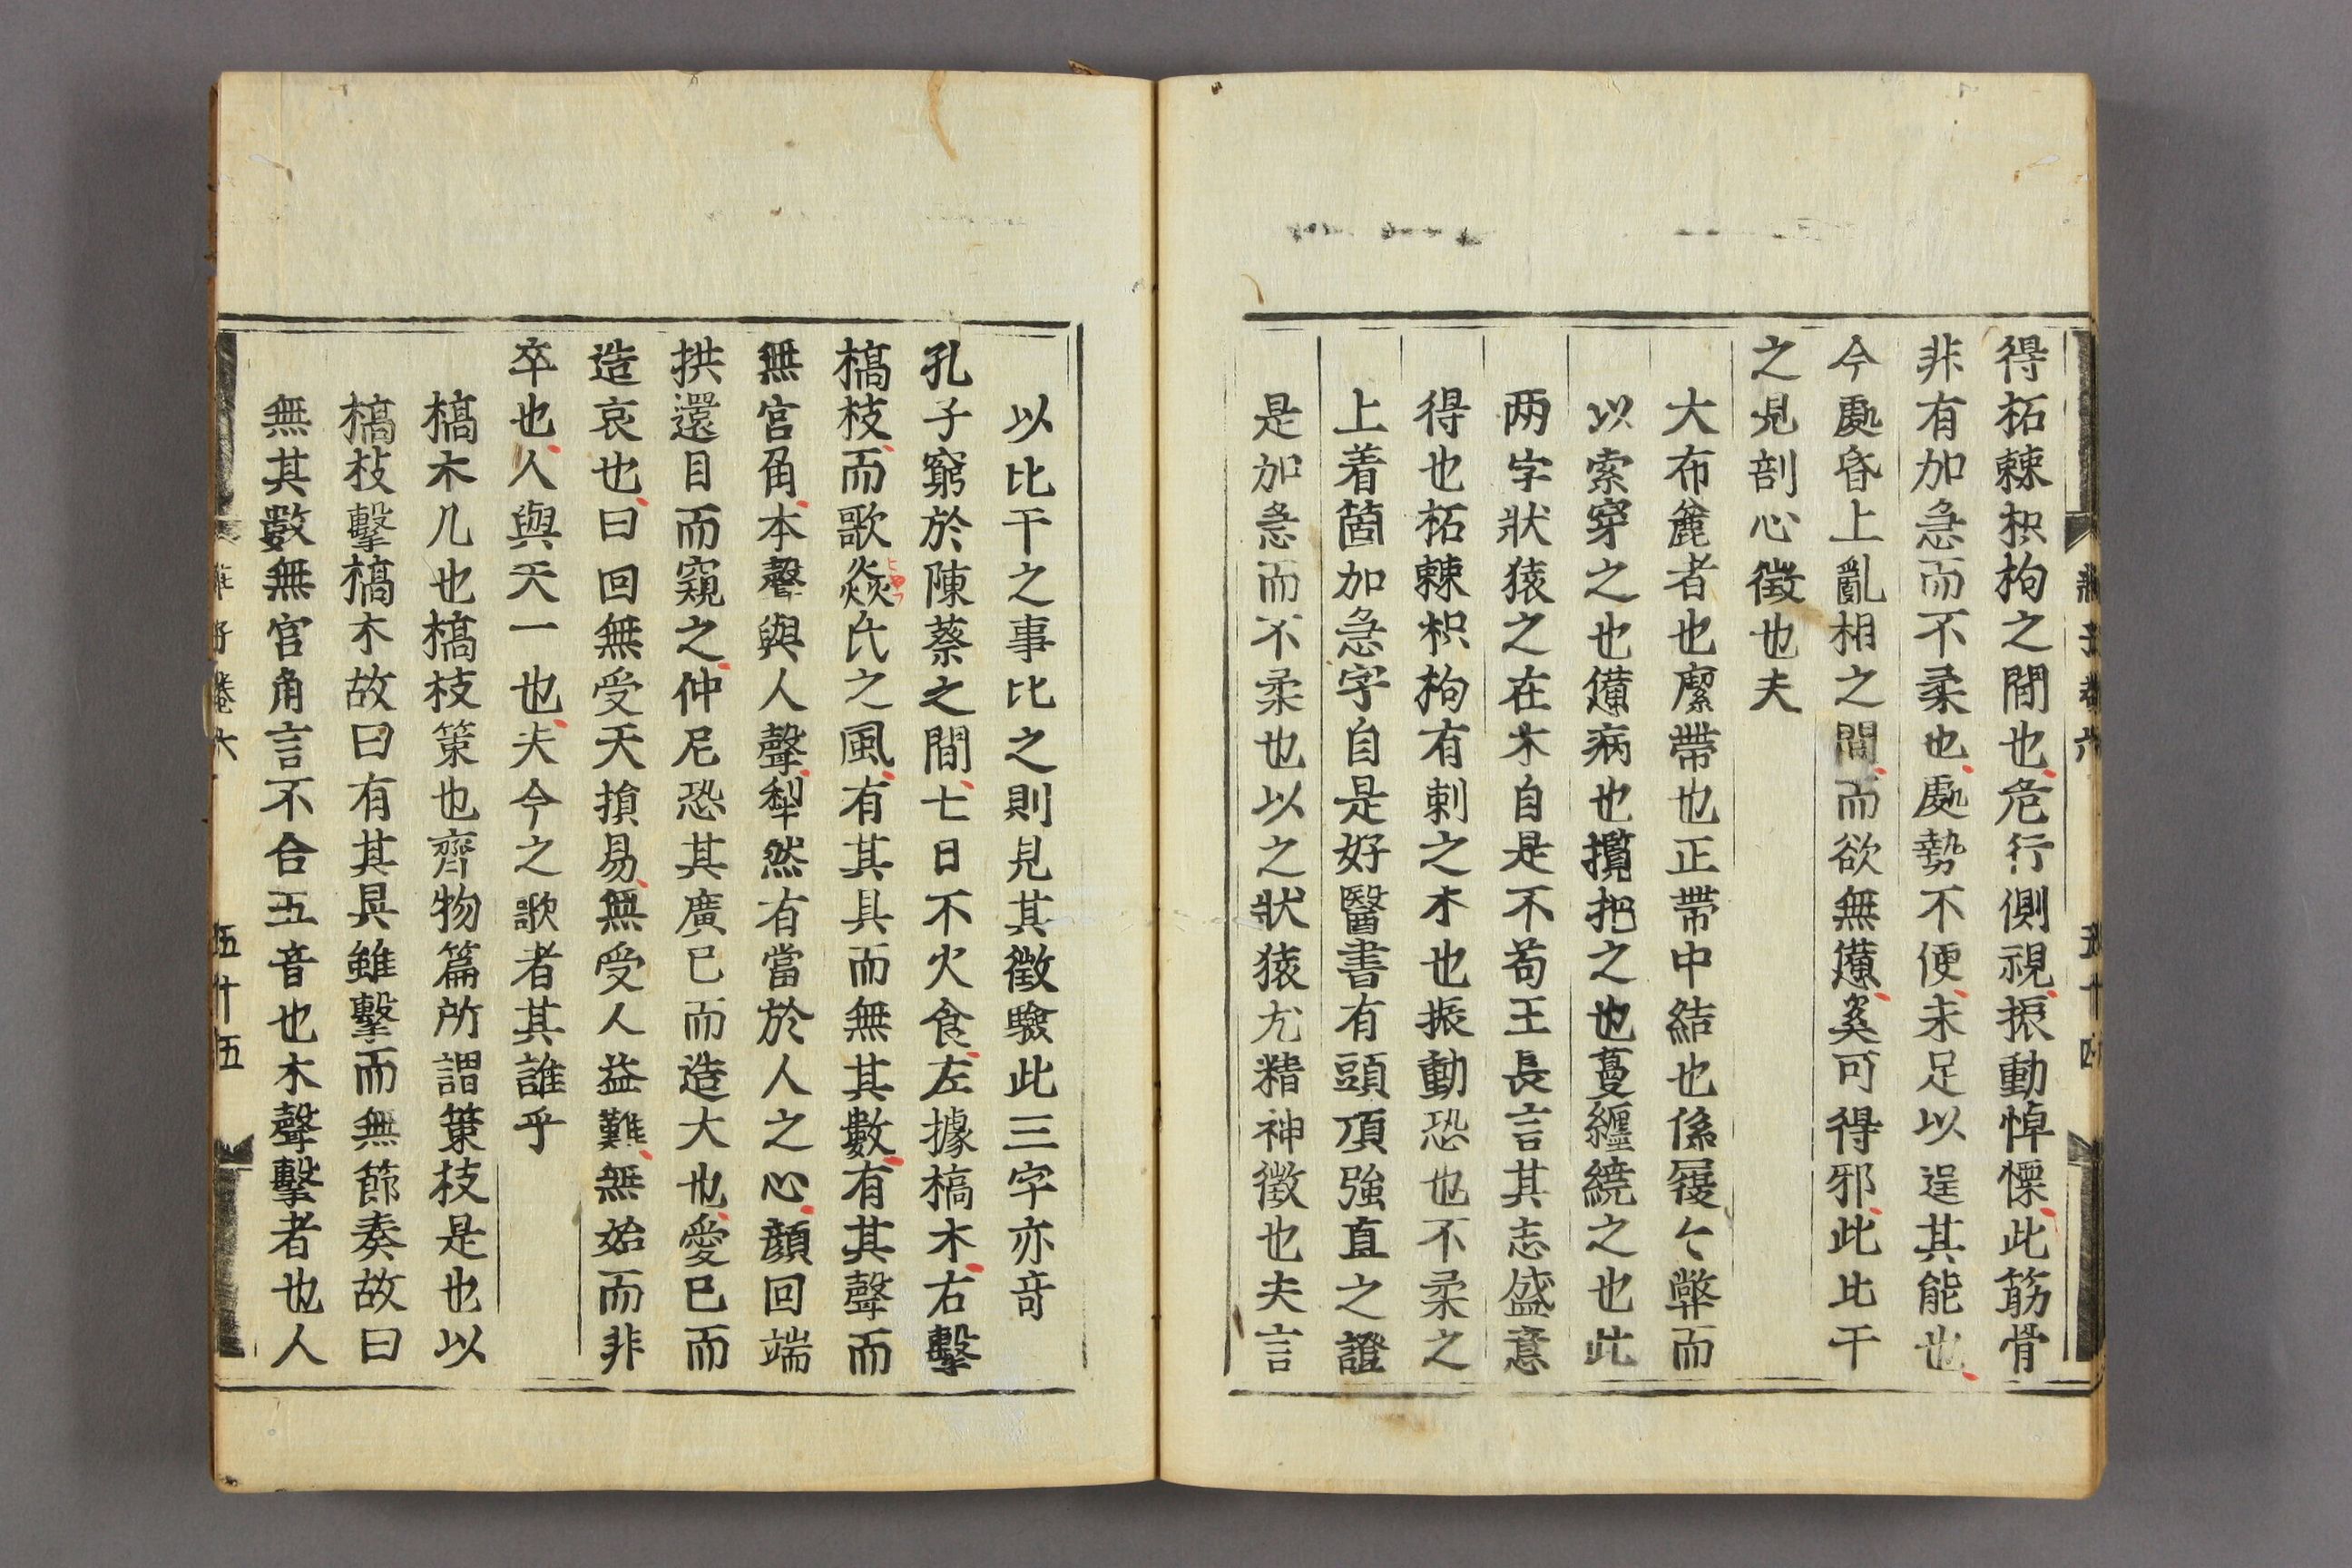 得柘棘枳枸之間也危行側視振動悼慄此筋骨
非有加急而不柔也處勢不便未足以逞其能也
今處昏上亂相之間而欲無憊奚可得邪此比干
之見剖心徵也夫
大布麄者也緳帶也正帶中結也係履々獘而
以索穿之也憊病也攬把之也蔓纏繞之也此
两字狀猿之在木自是不苟王長言其志盛意
得也柘棘枳枸有刺之木也振動恐也不柔之
上着箇加急字自是好醫書有頭項強直之證
是加急而不柔也以之狀猿尤精神徵也夫言
以比干之事比之則見其徵驗此三字亦竒
孔子窮於陳蔡之間七日不火食左據槁木右擊
槁枝而歌焱氏之風有其具而無其數有其聲而
無宮角木聲與人聲犁然有當於人之心顔回端
拱還目而窺之仲尼恐其廣已而造大也愛已而
造哀也曰回無受天損易無受人益難無始而非
卒也人與天一也夫今之歌者其誰乎
槁木几也槁枝策也齊物篇所謂策枝是也以
槁枝擊槁木故曰有其具雖擊而無節奏故曰
無其數無宮角言不合五音也木聲擊者也人
莊子卷六
五十五